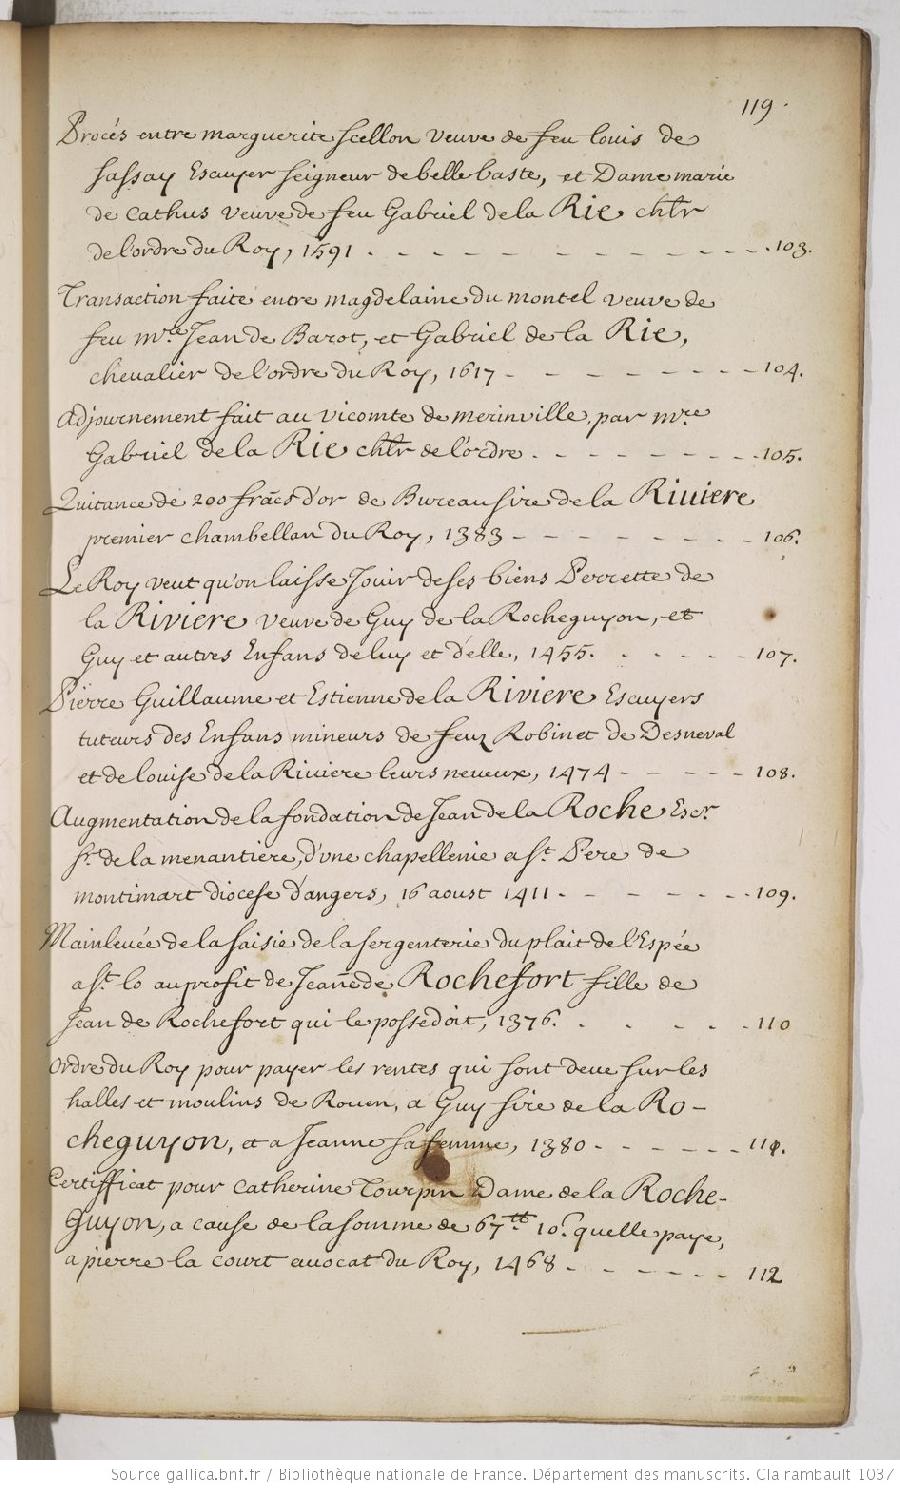 119.
Procés entre marguerite scellon veuve de feu louis de
sassay Escuyer seigneur de belle baste, et Dame marie
de cathus veuve de feu Gabriel de la Rie chlr
de l'ordre du Roy, 1591 . - - - - - - - - - - - . 103.
Transaction faite entre magdelaine du montel veuve de
feu mre Jean de Barot, et Gabriel de la Rie,
chevalier de l'ordre du Roy, 1617 - - - - - - - - 104.
Adjournement fait au vicomte de merinville par mre
Gabriel de la Rie chlr de l'ordre . - - - - - - - - 105.
Quitance de 200 francs d'or de Bureau sire de la Riviere
premier chambellan du Roy, 1383 - - - - - - - - 106.
Le Roy veut qu'on laisse Jouir de ses biens Perrette de
la Riviere veuve de Guy de la Rocheguyon, et
Guy et autres Enfans de luy et d'elle, 1455. . . . . - - 107.
Pierre Guillaume et Estienne de la Riviere Escuyers
tuteurs des Enfans mineurs de feuz Robinet de Desneval
et de louise de la Riviere leurs neveux, 1474 - - - - - 108.
Augmentation de la fondation de Jean de la Roche Escr
sr. de la menantiere, d'une chapellenie a st. Pere de
montimart diocese d'angers, 16 aoust 1411 - - - - - - - 109.
Mainlevée de la saisie de la sergenterie du plait de l'Espée
a st. lo au profit de Jeanne de Rochefort fille de
Jean de Rochefort qui le possedoit, 1376. . . . - - - 110
ordre du Roy pour payer les rentes qui sont deue sur les
halles et moulins de Rouen, a Guy sire de la Ro-
cheguyon, et a Jeanne sa femme, 1380 - - - - - - - 111.
Certifficat pour Catherine Tourpin Dame de la Roche-
Guyon, a cause de la somme de 67tt 10s quelle paye,
a pierre la court avocat du Roy, 1468 - - - - - - - 112
Source gallica.bnf.fr / Bibliothèque nationale de France. Département des manuscrits. Clairambault 1037